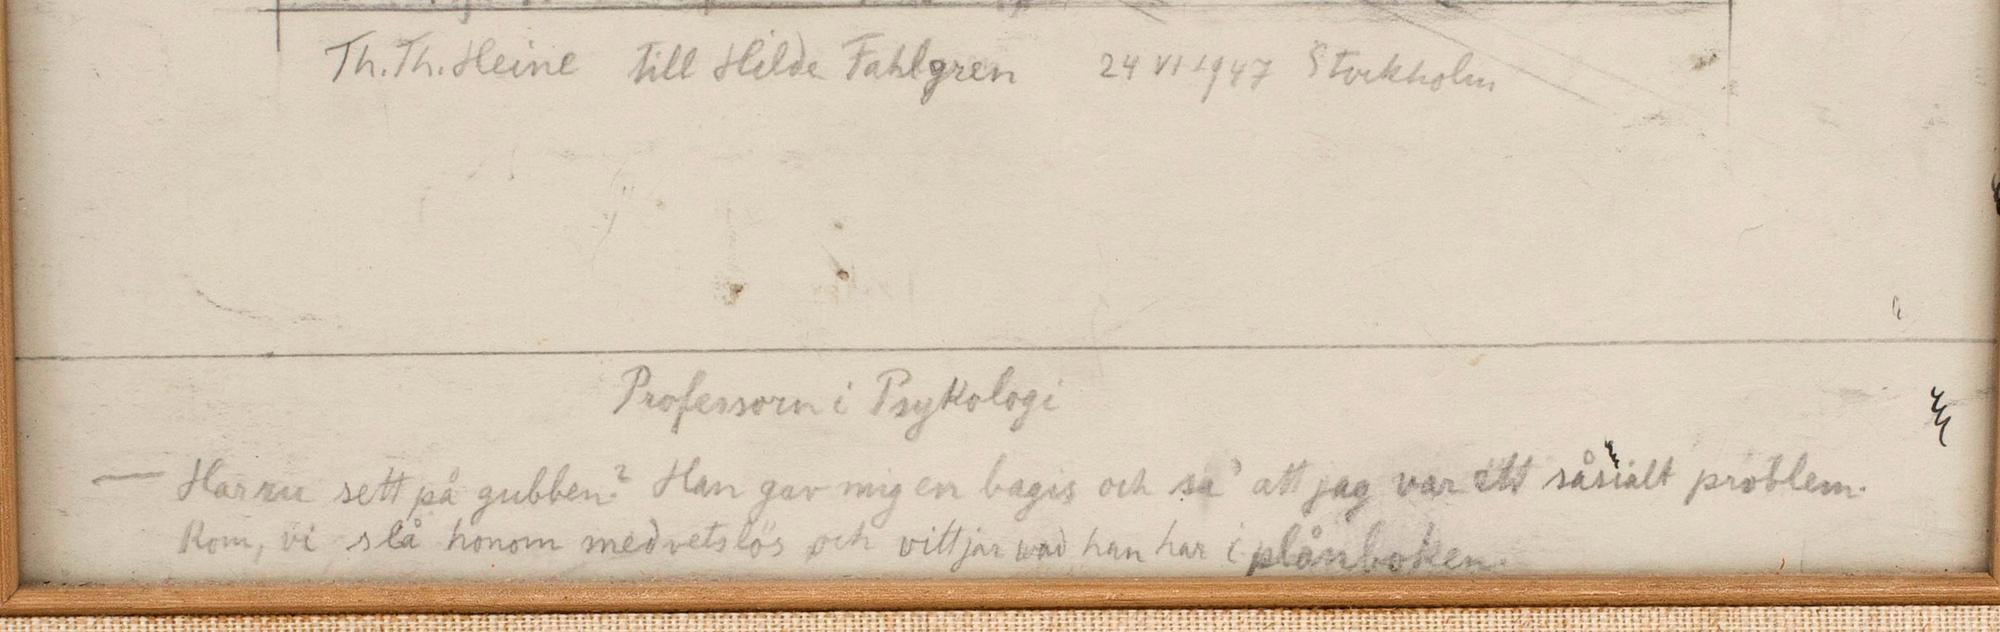 Th. Th. Heine till Hilde Fahlgren 24 VI 1947 Stockholm
Professorn i Psykologi
— Harru sett på gubben? Han gav mig en bagis och sa' att jag var ett såsialt problem.
Kom, vi slå honom medvetslös och vittjar wad han har i plånboken.